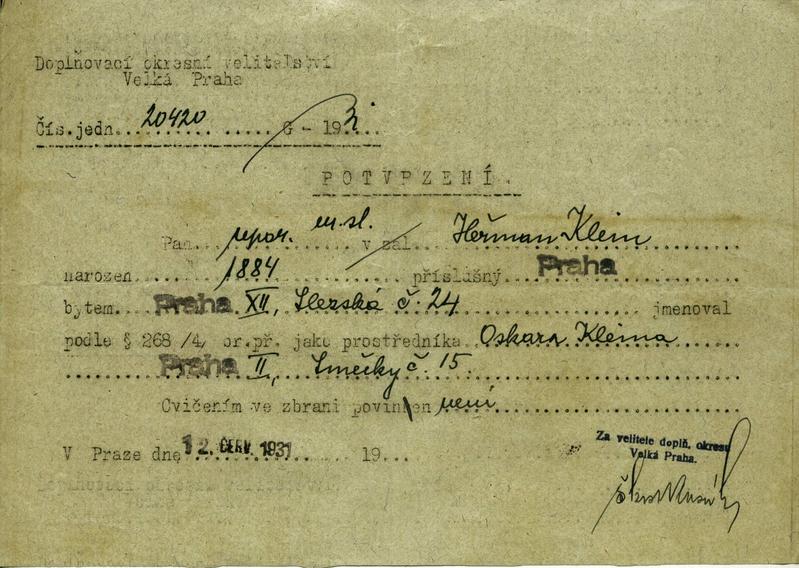 Doplňovací okresní velitelství
Velká Praha
Čís.jedn. 20420 G - 193
POTVRZENÍ.
Pan npor. v zál. Heřman Klein
narozen 1884 příslušný Praha
bytem Praha XII, Slezská č. 24 jmenoval
podle § 268/4, br.př. jako prostředníka Oskara Kleina
Praha II, Smečky č. 15.
Cvičením ve zbrani povinen není
V Praze dne 12. ČERV. 1931 19
Za velitele doplň. okresu
Velká Praha.